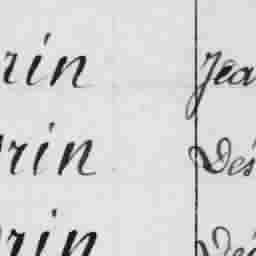 rin Jea
rin Dés
rin Dés